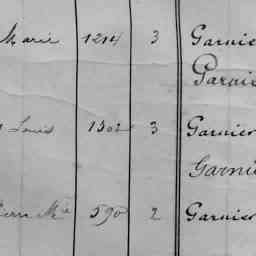 Marie 1214 3 Garnie
Garnie
Louis 1302 3 Garnier
Garni
590 2 Garnier